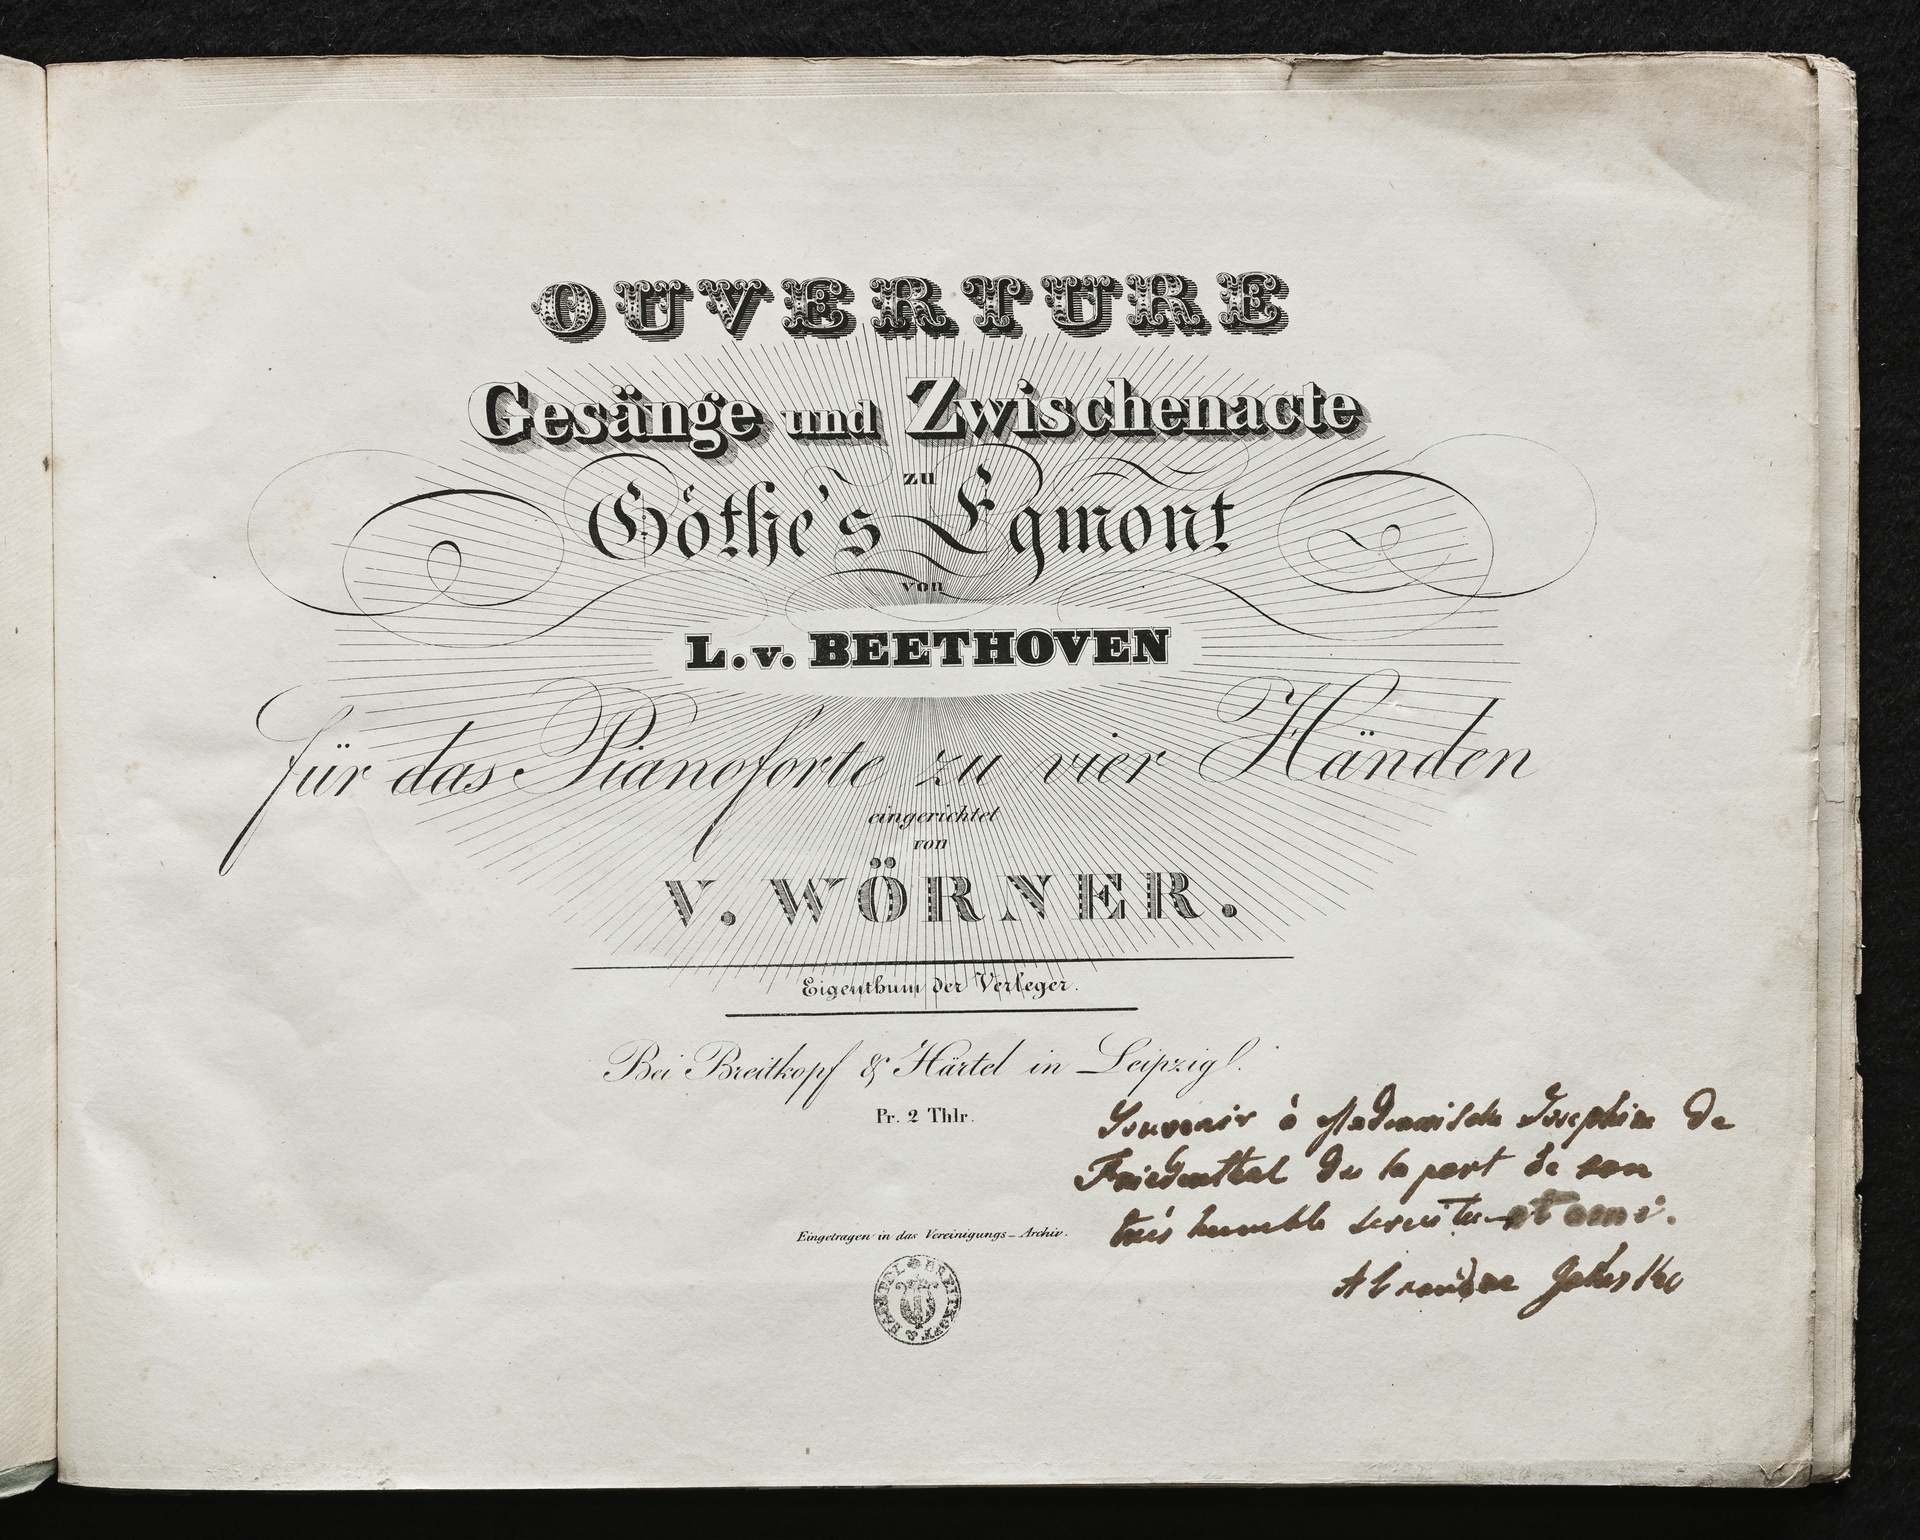 OUVERTURE
Gesänge und Zwischenacte
zu
Göthe's Egmont
von
L. v. BEETHOVEN
für das Pianoforte zu vier Händen
eingerichtet
von
V. WÖRNER.
Eigenthum der Verleger.
Bei Breitkopf & Härtel in Leipzig.
Pr. 2 Thlr.
Souvenir à Mademoiselle Josephine de
Friedenthal de la part de son
très humble et ami.
Eingetragen in das Vereinigungs-Archiv.
BREITKOPF & HÄRTEL